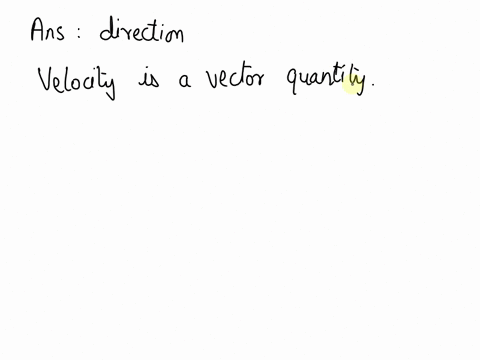 Ans : direction
Velocity is a vector quantity.